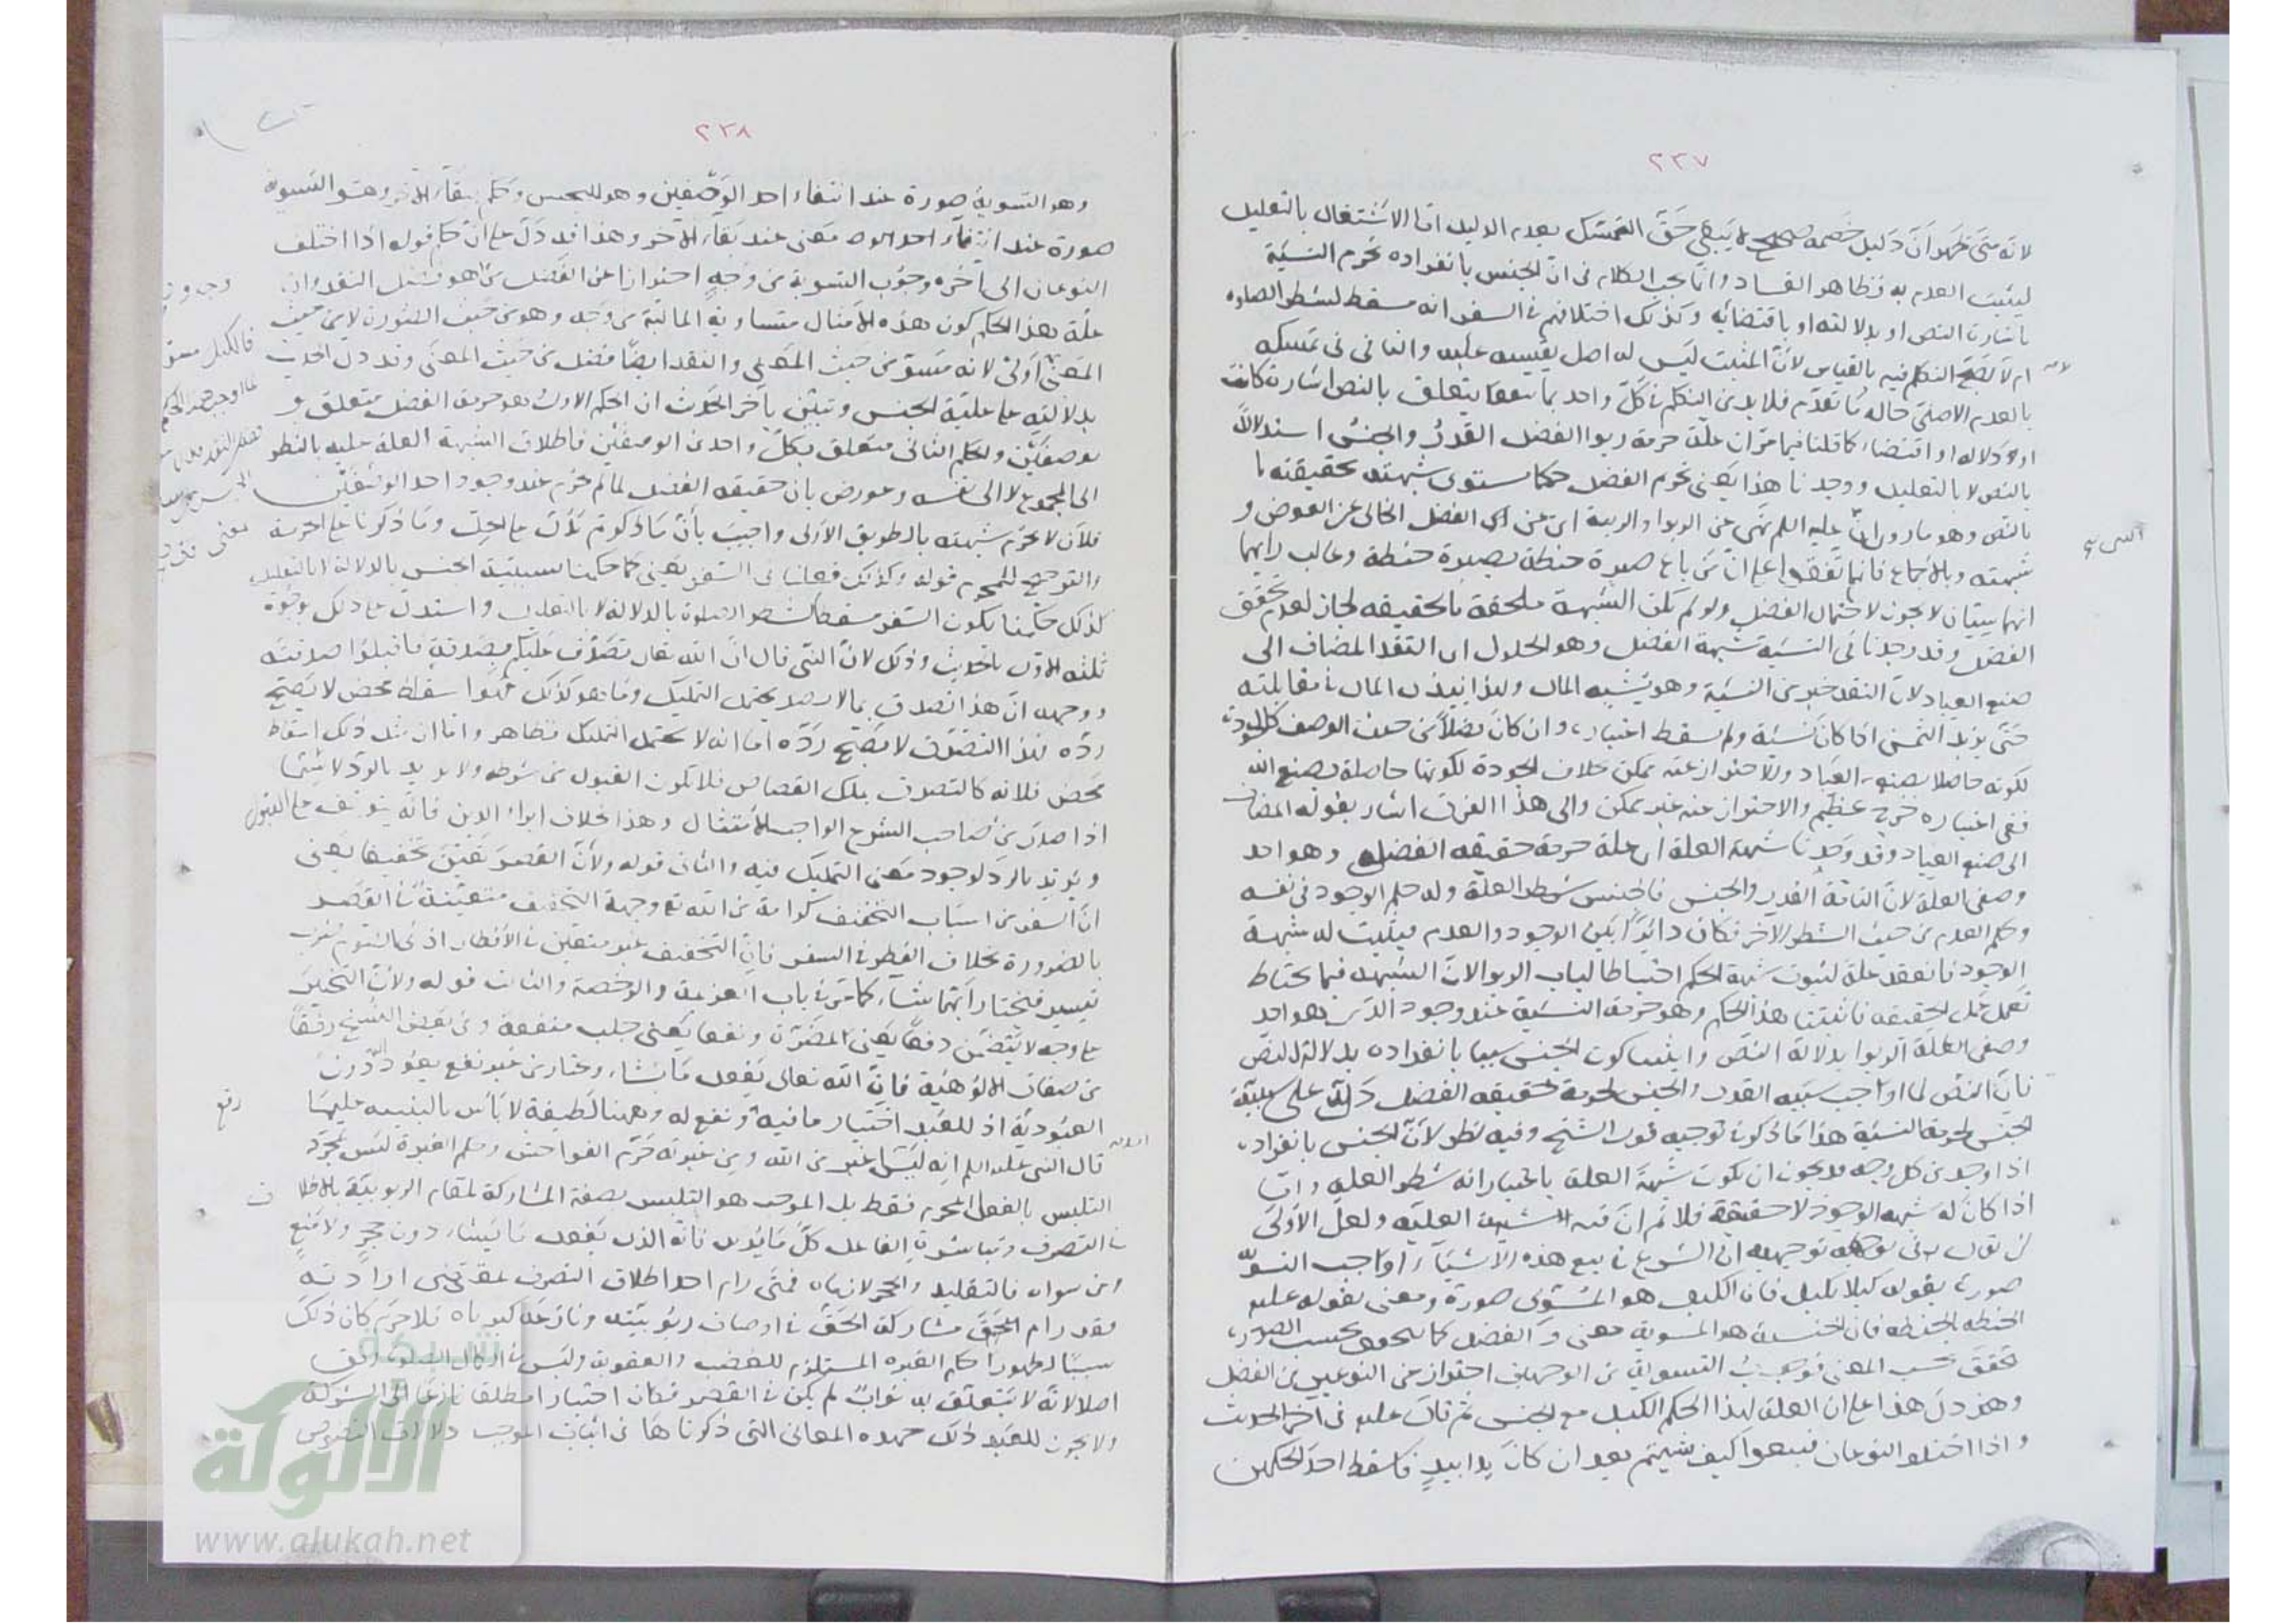 ٢٣٧
لانه متى ظهر ان دليل خصمه صحيح لا يبقى حق التمسك بعدم الدليل اما الاشتغال بالتعليل
ليثبت العدم به فظاهر الفساد وانما يجب الكلام فى ان الجنس بانفراده يحرم النسيئة
باشارة النص او بدلالته او باقتضائه وكذلك اختلافهم فى السفر انه مسقط لشطر الصلوة
ام لا يصح التكلم فيه بالقياس لان المثبت ليس له اصل يقيسه عليه والنافى فى تمسكه
بالعدم الاصلى حاله ما تقدم فلا بد من التكلم فى كل واحد بما يتعلق بالنص اشارة كانت
او دلالة او اقتضاء كما قلنا فيما مر ان علة حرمة ربوا الفضل القدر والجنس استدلالا
بالنص لا بالتعليل ووجدنا هذا يعنى تحريم الفضل حكما يستوى شبهته بحقيقته
بالنص وهو ما روى انه عليه السلم نهى عن الربوا والريبة اى عن الفضل الخالى عن العوض و
شبهته وبالاجماع فانهم اتفقوا على ان من باع صبرة حنطة بصبرة حنطة وغالب رايهما
انهما سيان لا يجوز لاحتمال الفضل ولو لم تكن الشبهة ملحقة بالحقيقه لجاز لعدم تحقق
الفضل وقد وجدنا فى النسيئة شبهة الفضل وهو الحلول اى النقد المضاف الى
صنع العباد لان النقد خير من النسيئة وهو يشبه المال ولهذا يبذل المال فى مقابلته
حتى يزيد الثمن اذا كان نسيئة ولم يسقط اعتباره وان كان فضلا من حيث الوصف كالجودة
لكونه حاصلا بصنع العباد والاحتراز عنه ممكن بخلاف الجودة لكونها حاصلة بصنع الله
ففى اعتباره حرج عظيم والاحتراز عنه غير ممكن والى هذا الفرق اشار بقوله المضاف
الى صنع العباد وقد وجدنا شبهة العلة اى علة حرمة حقيقة الفضل وهو احد
وصفى العلة لان التامة القدر والجنس فالجنس شطر العلة وله حكم الوجود فى نفسه
وحكم العدم من حيث الشطر الاخر فكان دائرا بين الوجود والعدم فيثبت له شبهة
الوجود فانعقد علة لثبوت شبهة الحكم احتياطا لباب الربوا لان الشبهة فيما يحتاط
تعمل عمل الحقيقه فاثبتنا هذا الحكم وهو حرمة النسيئة عند وجود الذى هو احد
وصفى العلة الربوا بدلالة النص واثبتنا كون الجنس سببا بانفراده بدلالة النص
فان النص لما اوجب سببية القدر والجنس لحرمة حقيقة الفضل دل على سببية
الجنس لحرمة النسيئة هذا ما ذكروا فى توجيه قول الشيخ وفيه نظر لان الجنس بانفراده
اذا وجد من كل وجه فلا يجوز ان يكون شبهة العلة باعتبار انه شطر العلة واما
اذا كان له شبهة الوجود لا حقيقة فلا ثم ان فيه شبهة العلية ولعل الاولى
ان نقول فى توجيهه ان الشرع فى بيع هذه الاشياء اوجب التسوية
صورة بقوله كيلا بكيل فان الكيل هو المسوى صورة ومعنى بقوله عليه
الحنطة بالحنطة فان الجنسية هو المسوية معنى والفضل كما يتحقق بحسب الصورة
تحقق بحسب المعنى فوجبت التسوية من الوجهين احترازا عن النوعين من الفضل
وقد دل هذا على ان العلة لهذا الحكم الكيل مع الجنس ثم قال عليه فى اخر الحديث
واذا اختلف النوعان فبيعوا كيف شيتم بعد ان كان يدا بيد فاسقط احد الحكمين
٢٣٨
وهو التسوية صورة عند انتفاء احد الوصفين وهو الجنس وحكم ببقاء الاخر وهو التسوية
صورة عند انتفاء احد معنى عند بقاء الاخر وهذا قد دل على ان حكم قوله اذا اختلف
النوعان الى آخره وجوب التسوية من وجه احترازا عن الفضل هو فضل النقد وان
علة هذا الحكم كون هذه الامثال متساوية المالية من وجه وهو من حيث الصورة لا من حيث
المعنى اولى لانه مسو من حيث المعنى والنقد ايضا فضل من حيث المعنى وقد دل الحديث
بدلالته على علية الجنس وتبين بآخر الحديث ان الحكم الاول وهو حرمة الفضل متعلق
بوصفين والحكم الثانى متعلق بكل واحد من الوصفين فاطلاق الشبهة العلة عليه بالنظر
الى المجموع لا الى نفسه وعورض بان حقيقة الفضل لما لم يحرم عند وجود احد الوصفين
فلان لا يحرم شبهته بالطريق الاولى واجيب بان ما ذكرتم يدل على الحل وما ذكرنا على الحرمة
والترجيح للمحرم قوله وكذلك فعلنا فى السفر يعنى كما حكمنا بسببية الجنس بالدلالة لا بالتعليل
كذلك حكمنا بكون السفر مسقطا لشطر الصلوة بالدلالة لا بالتعليل واستدل على ذلك بوجوه
ثلثة الاول بالحديث وذلك لان النبى قال ان الله تعالى تصدق عليكم بصدقة فاقبلوا صدقته
ووجهه ان هذا تصدق بما لا يحتمل التمليك وما هو كذلك فهو اسقاط محض لا يصح
رده فهذا التصدق لا يصح رده اما انه لا يحتمل التمليك فظاهر واما ان مثل ذلك اسقاط
محض فلانه كالتصدق بملك القصاص فلا يكون القبول من شرطه ولا يرتد بالرد لا سيما
اذا صدر من صاحب الشرع الواجب الامتثال وهذا بخلاف ابراء الدين فانه يتوقف على القبول
ويرتد بالرد لوجود معنى التمليك فيه والثانى قوله ولان القصر تعين تخفيفا يعنى
ان السفر من اسباب التخفيف كرامة من الله تع وجهة التخفيف متعينة فى القصر
بالضرورة بخلاف الفطر فى السفر فان التخفيف غير متعين فى الافطار اذ فى الصوم ضرب
تيسير فيختار ايهما شاء كما مر فى باب العزيمة والرخصة والثالث قوله ولان التخيير
على وجه لا يتضمن دفعا يعنى المضرة ونفعا يعنى جلب منفعة وفى بعض النسخ رفقا
من صفات الالوهية فان الله تعالى يفعل ما يشاء ويختار من غير نفع يعود اليه دون
العبودية اذ للعبد اختيار ما فيه نفع له وههنا لطيفة لا باس بالتنبيه عليها
قال النبى عليه السلم انه ليس اغير من الله ومن غيرته حرم الفواحش وحكم الغيرة ليس بمجرد
التلبس بالفعل المحرم فقط بل الموجب هو التلبس بصفة المشاركة لمقام الربوبية بالاطلاق
فى التصرف ومباشرة الفاعل كل ما يريد فانه الذى يفعل ما يشاء دون حجر ولا منع
ومن سواه فالتقليد والحجر لازماه فمتى رام احد اطلاق التصرف بمقتضى ارادته
فقد رام مشاركة الحق فى اوصاف ربوبيته ونازعه كبرياه فلا جرم كان ذلك
سببا لظهور حكم الغيرة المستلزم للغضب والعقوبة وليس فى اكمال الصلوة رفق
اصلا لانه لا يتعلق به ثواب لم يكن فى القصر فكان اختيارا مطلقا نازعا الى الشركة
ولا يجوز للعبد ذلك فهذه المعانى التى ذكرناها فى اثبات الموجب دلالات النصوص
شبكة
الألوكة
www.alukah.net